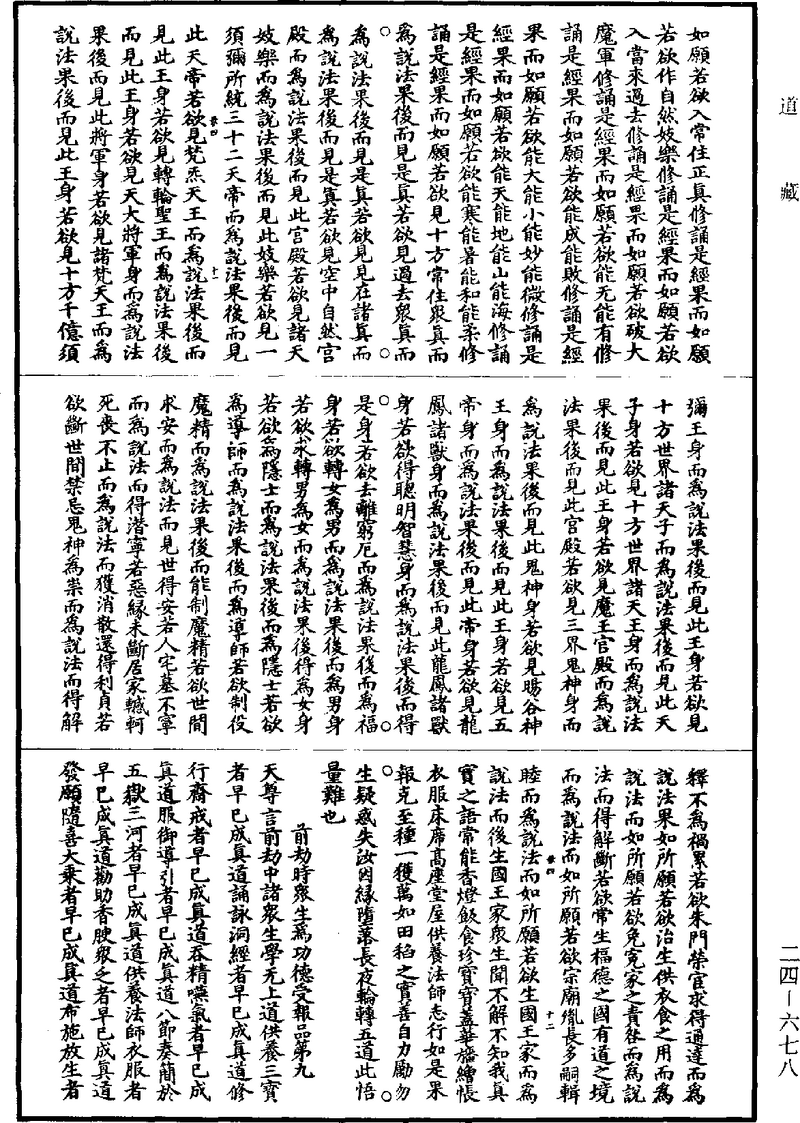 道藏
如願若欲入常住正真修誦是經果而如願
若欲作自然妓樂修誦是經果而如願若欲
入當來過去修誦是經果而如願若欲破大
魔軍修誦是經果而如願若欲能无能有修
誦是經果而如願若欲能成能敗修誦是經
果而如願若欲能大能小能妙能微修誦是
經果而如願若欲能天能地能山能海修誦
是經果而如願若欲能寒能暑能和能柔修
誦是經果而如願若欲見十方常住衆真而
爲說法果後而見是真若欲見過去衆真而
爲說法果後而見是真若欲見見在諸真而
爲說法果後而見是真若欲見空中自然宮
殿而爲說法果後而見此宮殿若欲見諸天
妓樂而爲說法果後而見此妓樂若欲見一
須彌所統三十二天帝而爲說法果後而見
此天帝若欲見梵炁天王而爲說法果後而
見此王身若欲見轉輪聖王而爲說法果後
而見此王身若欲見天大將軍身而爲說法
果後而見此將軍身若欲見諸梵天王而爲
說法果後而見此王身若欲見十方千億須
彌王身而爲說法果後而見此王身若欲見
十方世界諸天子而爲說法果後而見此天
子身若欲見十方世界諸天王身而爲說法
果後而見此王身若欲見魔王宮殿而爲說
法果後而見此宮殿若欲見三界鬼神身而
爲說法果後而見此鬼神身若欲見暘谷神
王身而爲說法果後而見此王身若欲見五
帝身而爲說法果後而見此帝身若欲見龍
鳳諸獸身而爲說法果後而見此龍鳳諸獸
身若欲得聰明智慧身而爲說法果後而得
是身若欲去離窮厄而爲說法果後而爲福
身若欲轉女爲男而爲說法果後而爲男身
若欲求轉男爲女而爲說法果後得爲女身
若欲爲隱士而爲說法果後而爲隱士若欲
爲導師而爲說法果後而爲導師若欲制役
魔精而爲說法果後而能制魔精若欲世間
求安而爲說法而見世得安若人宅墓不寧
而爲說法而得潜寧若惡緣未斷居家轗軻
死喪不止而爲說法而獲消散還得利貞若
欲斷世間禁忌鬼神爲祟而爲說法而得解
釋不爲禍累若欲朱門榮官求得通達而爲
說法果如所願若欲治生供衣食之用而爲
說法而如所願若欲免寃家之責咎而爲說
法而得解斷若欲常生福德之國有道之境
而爲說法而如所願若欲宗廟胤長多嗣輯
睦而爲說法而如所願若欲生國王家而爲
說法而後生國王家衆生聞不解不知我真
實之語常能香燈飯食珍寶寶蓋華旛繒帳
衣服床席高座堂屋供養法師志行如是果
報克至種一獲萬如田稻之實善自力勵勿
生疑惑失汝因緣墮落長夜輪轉五道此悟
量難也
前劫時衆生爲功德受報品第九
天尊言前劫中諸衆生學无上道供養三寶
者早已成真道誦詠洞經者早已成真道修
行齋戒者早已成真道吞精嚥氣者早已成
真道服御導引者早已成真道八節奏簡於
五嶽三河者早已成真道供養法師衣服者
早已成真道勸助香腴衆乏者早已成真道
發願隨喜大乘者早已成真道布施放生者
二四—六七八